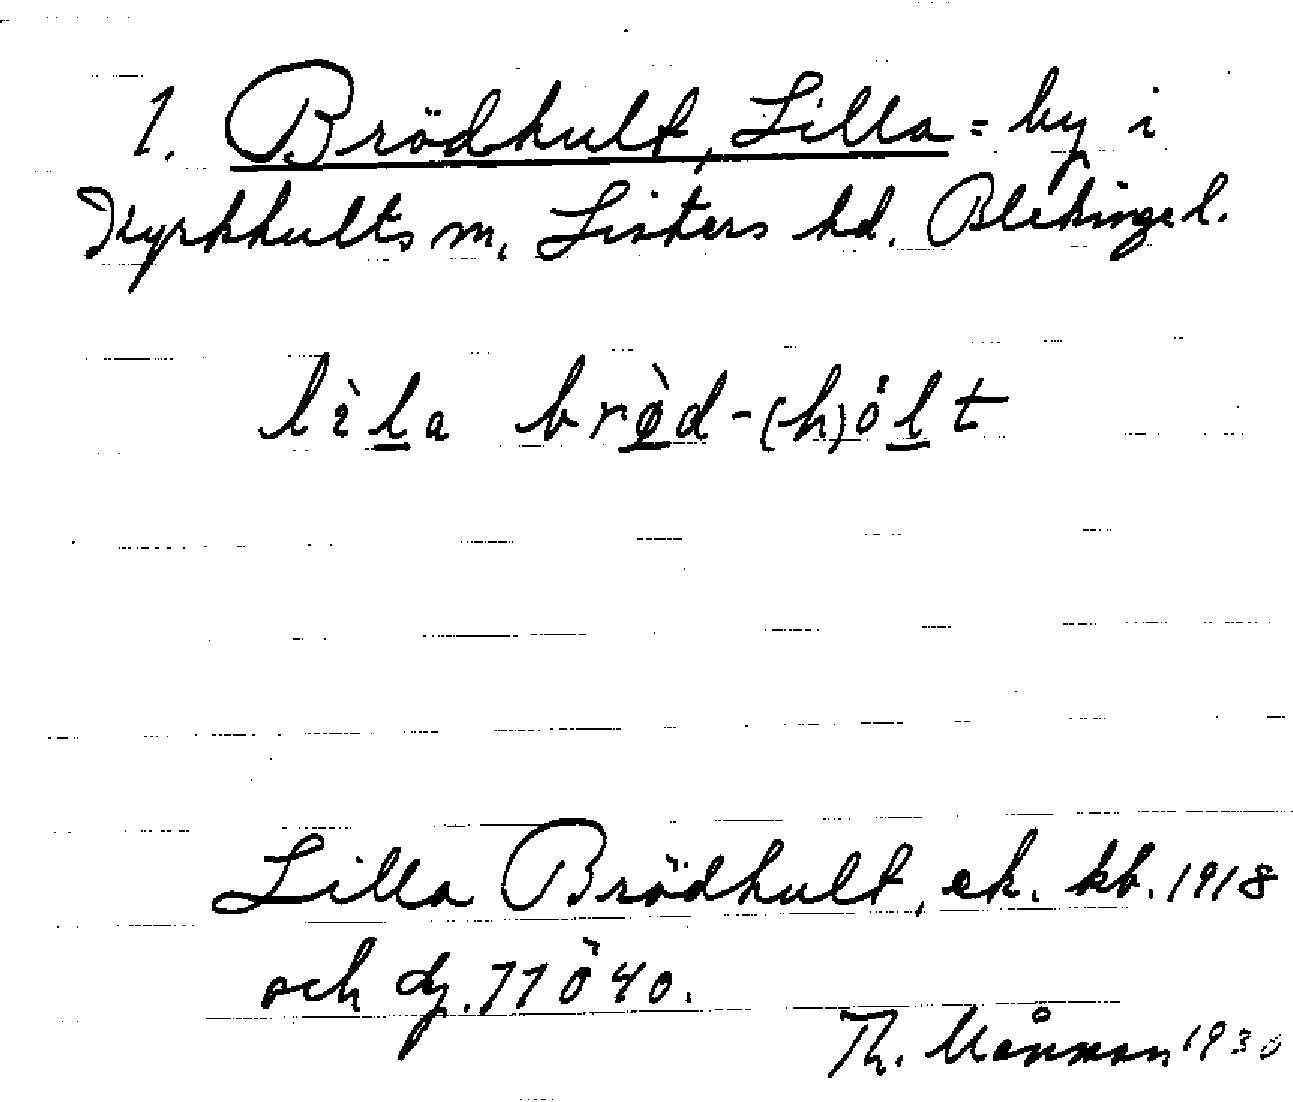 1. Brödhult, Lilla = by i
Kyrkhults sn. Listers hd. Blekinge l.
lìla brø̀d-(h)ȯlt
Lilla Brödhult, ek. kb. 1918
och dg. 11 ö 40.
Th. Månsson 1930